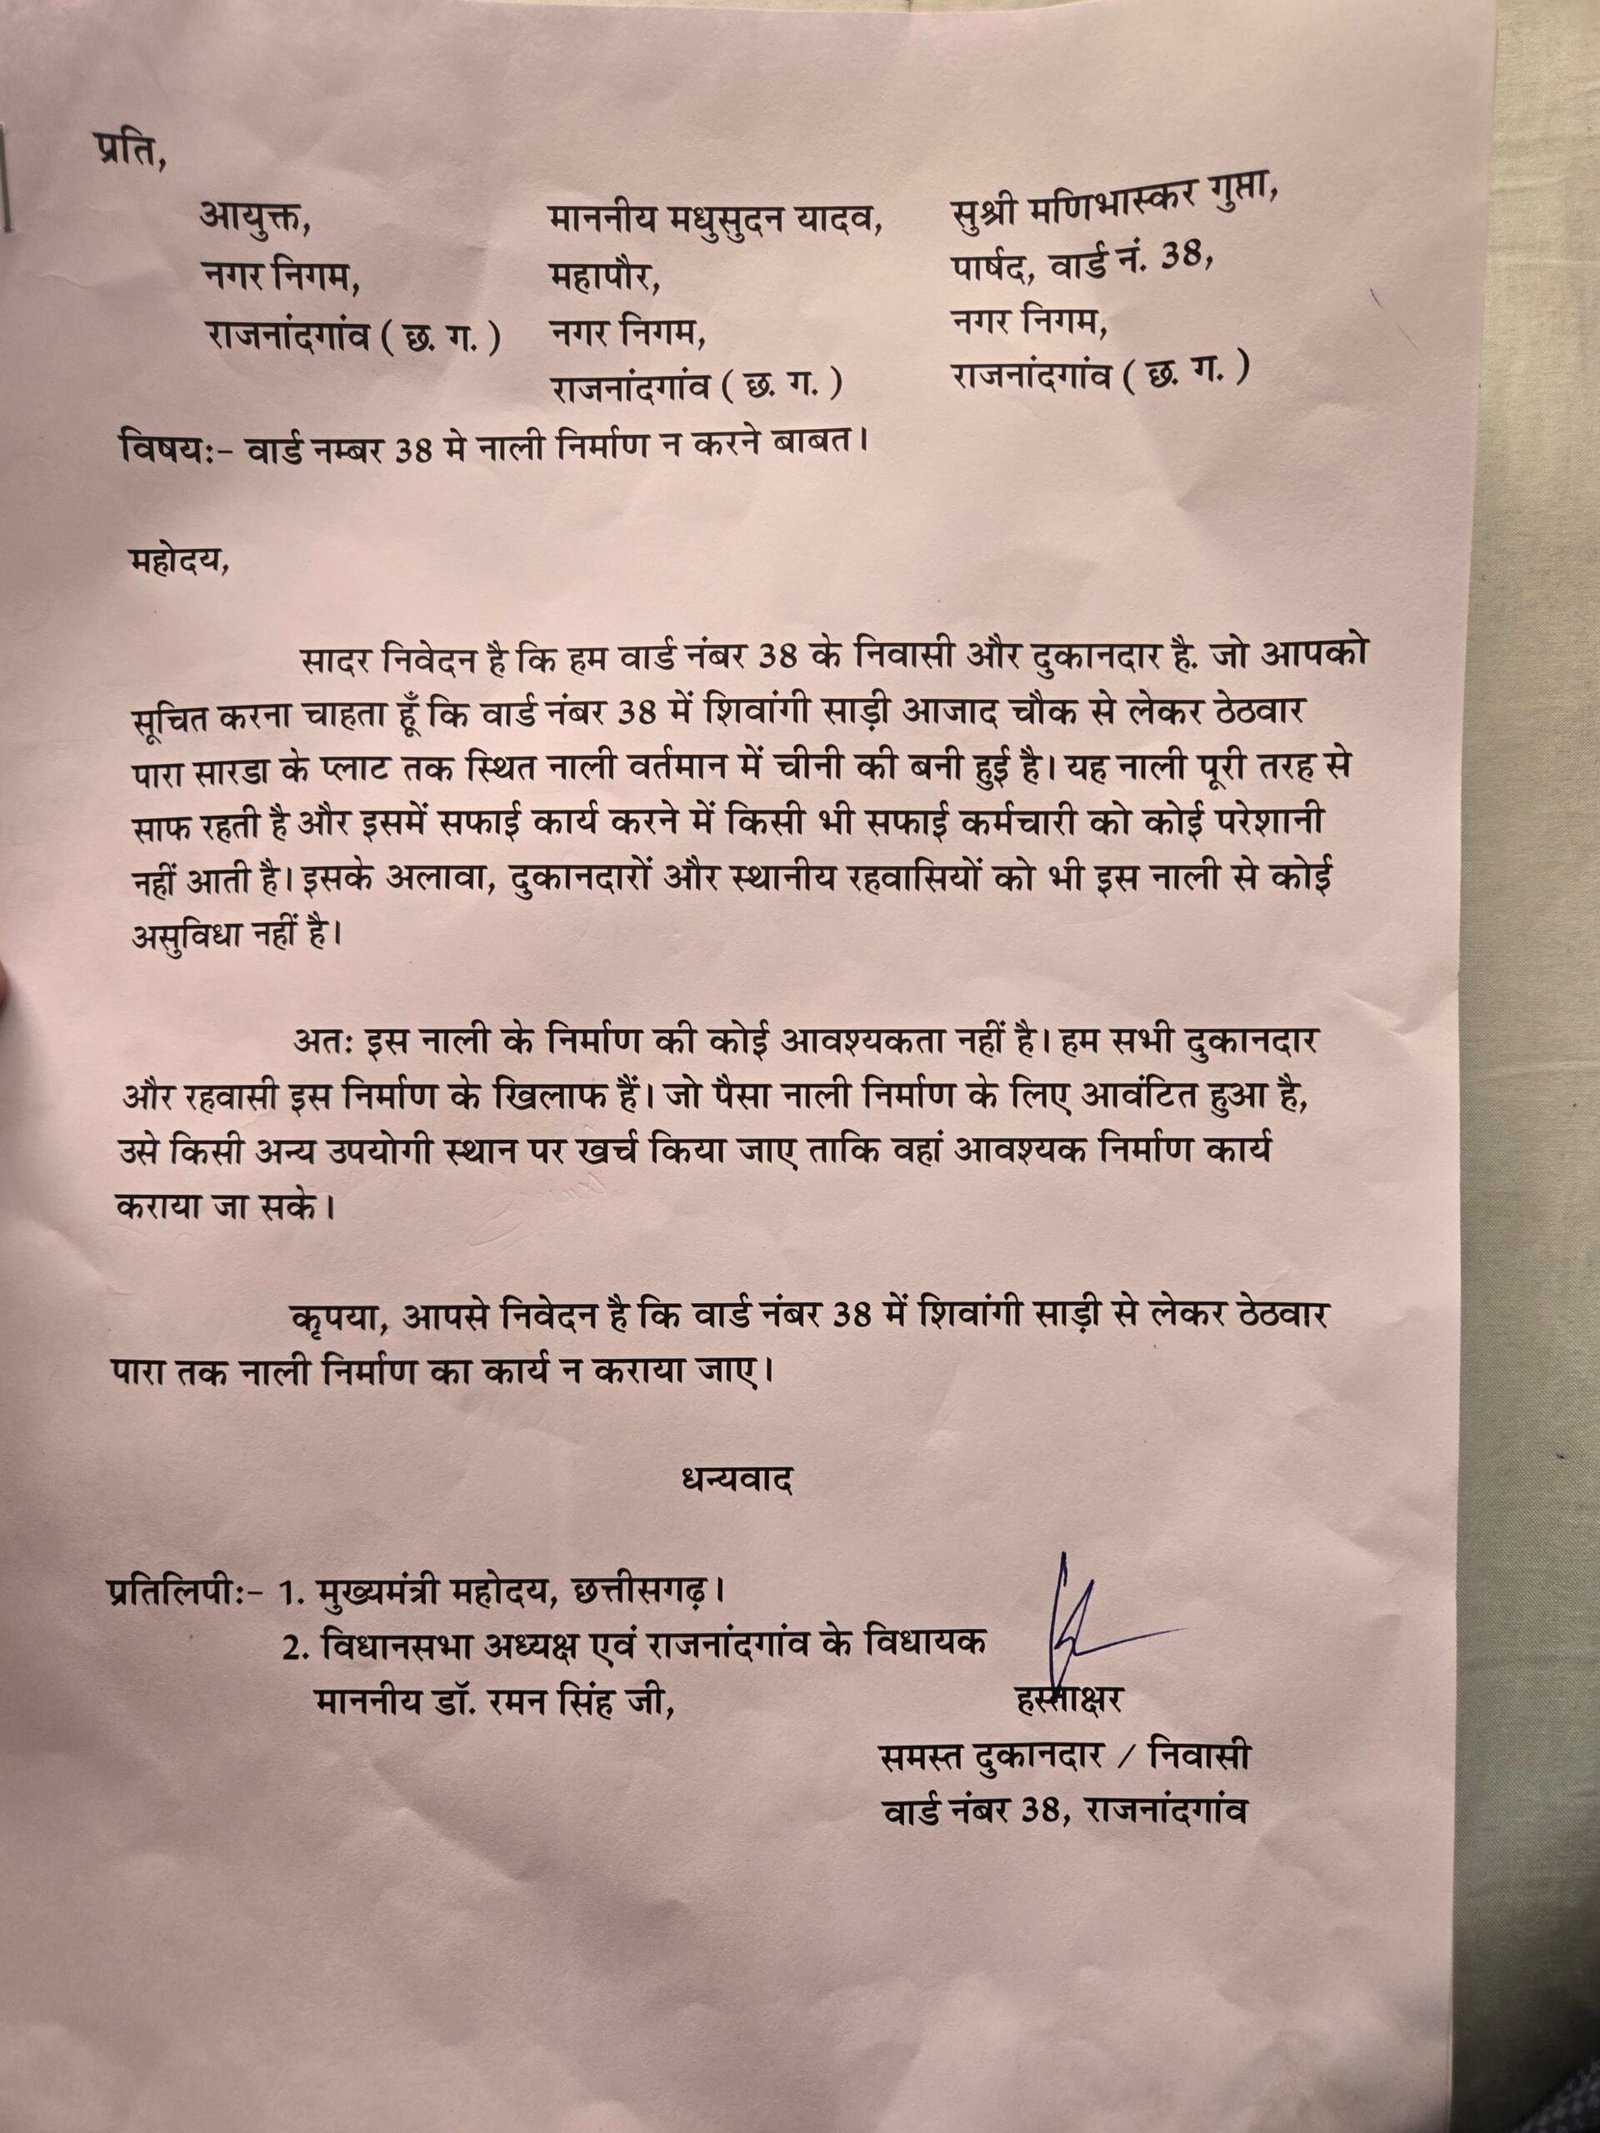 प्रति,
आयुक्त,
नगर निगम,
राजनांदगांव ( छ. ग. )
माननीय मधुसुदन यादव,
महापौर,
नगर निगम,
राजनांदगांव ( छ. ग. )
सुश्री मणिभास्कर गुप्ता,
पार्षद, वार्ड नं. 38,
नगर निगम,
राजनांदगांव ( छ. ग. )
विषयः- वार्ड नम्बर 38 मे नाली निर्माण न करने बाबत।
महोदय,
सादर निवेदन है कि हम वार्ड नंबर 38 के निवासी और दुकानदार है. जो आपको
सूचित करना चाहता हूँ कि वार्ड नंबर 38 में शिवांगी साड़ी आजाद चौक से लेकर ठेठवार
पारा सारडा के प्लाट तक स्थित नाली वर्तमान में चीनी की बनी हुई है। यह नाली पूरी तरह से
साफ रहती है और इसमें सफाई कार्य करने में किसी भी सफाई कर्मचारी को कोई परेशानी
नहीं आती है। इसके अलावा, दुकानदारों और स्थानीय रहवासियों को भी इस नाली से कोई
असुविधा नहीं है।
अतः इस नाली के निर्माण की कोई आवश्यकता नहीं है। हम सभी दुकानदार
और रहवासी इस निर्माण के खिलाफ हैं। जो पैसा नाली निर्माण के लिए आवंटित हुआ है,
उसे किसी अन्य उपयोगी स्थान पर खर्च किया जाए ताकि वहां आवश्यक निर्माण कार्य
कराया जा सके।
कृपया, आपसे निवेदन है कि वार्ड नंबर 38 में शिवांगी साड़ी से लेकर ठेठवार
पारा तक नाली निर्माण का कार्य न कराया जाए।
धन्यवाद
प्रतिलिपीः- 1. मुख्यमंत्री महोदय, छत्तीसगढ़।
2. विधानसभा अध्यक्ष एवं राजनांदगांव के विधायक
माननीय डॉ. रमन सिंह जी,
हस्ताक्षर
समस्त दुकानदार / निवासी
वार्ड नंबर 38, राजनांदगांव